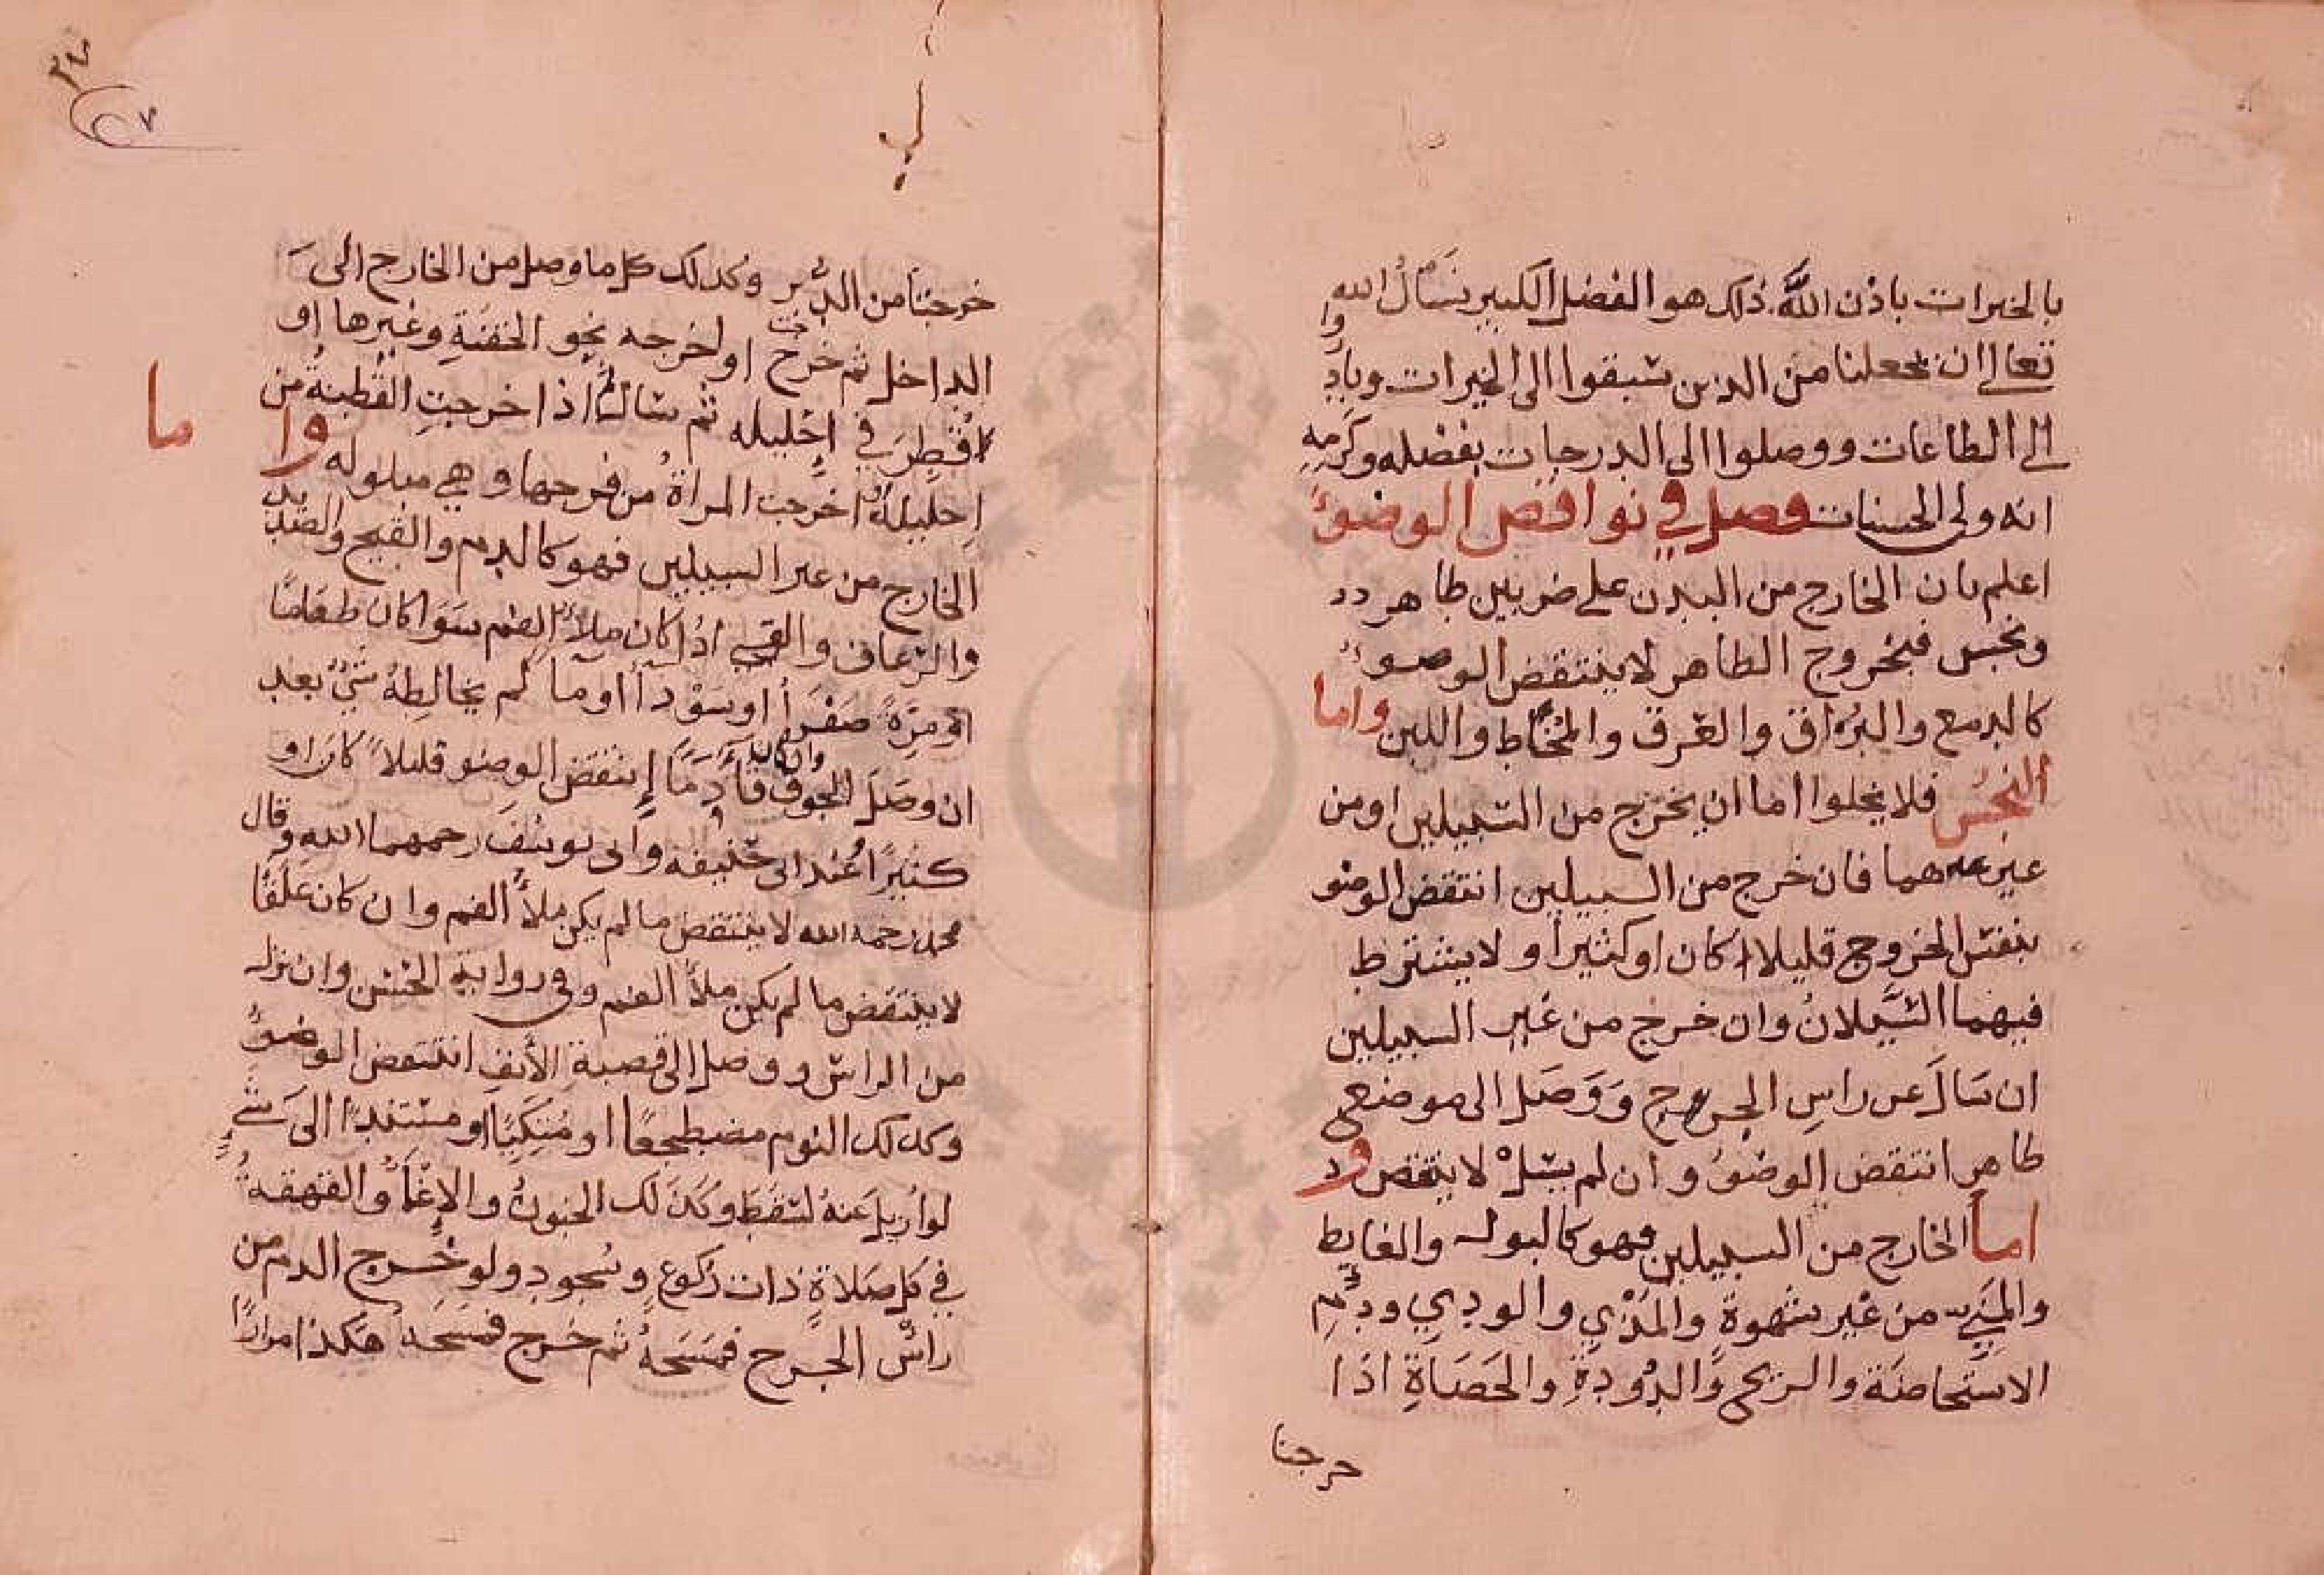 بالخيرات باذن الله ذلك هو الفضل الكبير نسال الله
تعالى ان يجعلنا من الذين سبقوا الى الخيرات وبادروا
الى الطاعات ووصلوا الى الدرجات بفضله وكرمه
انه ولى الحسنات فصل في نواقض الوضوء
اعلم بان الخارج من البدن على ضربين طاهر
ونجس فبخروج الطاهر لا ينتقض الوضوء
كالدمع والبزاق والعرق والمخاط واللبن واما
النجس فلا يخلوا اما ان يخرج من السبيلين او من
غيرهما فان خرج من السبيلين انتقض الوضو
بنفس الخروج قليلا كان او كثيرا و لا يشترط
فيهما السيلان وان خرج من غير السبيلين
ان سال عن راس الجرح ووصل الى موضع
طاهر انتقض الوضوء وان لم يسل لا ينتقض و
اما الخارج من السبيلين فهو كالبول والغايط
والمني من غير شهوة والمذي والودي ودم
الاستحاضة والريح والدودة والحصاة اذا
خرجتا
خرجتا من الدبر وكذلك كل ما وصل من الخارج الى
الداخل ثم خرج او اخرجه نحو الحقنة وغيرها او
اقطر في احليله ثم سال اذا خرجت القطنة من
احليله او اخرجت المراة من فرجها وهي مبلوله وا ما
الخارج من غير السبيلين فهو كالدم والقيح والصديد
والرعاف والقيء اذا كان ملأ الفم سوا كان طعاما
او مرة صفرا او سودا او ما لم يخالطه شيء بعد
ان وصل الجوف وان كان قاء دما ينتقض الوضو قليلا كان او
كثيرا عند ابى حنيفه وابى يوسف رحمهما الله وقال
محمد رحمه الله لا ينتقض ما لم يكن ملأ الفم وان كان علقا
لا ينتقض ما لم يكن ملأ الفم وفي رواية الحسن وان نزل
من الراس ووصل الى قصبة الأنف انتقض الوضوء
وكذلك النوم مضطجعا او متكيا او مستندا الى شيء
لو ازيل عنه لسقط وكذلك الجنون والإغما والقهقهة
في كل صلاة ذات ركوع وسجود ولو خرج الدم من
راس الجرح فمسحه ثم خرج فمسحه هكذا مرارا